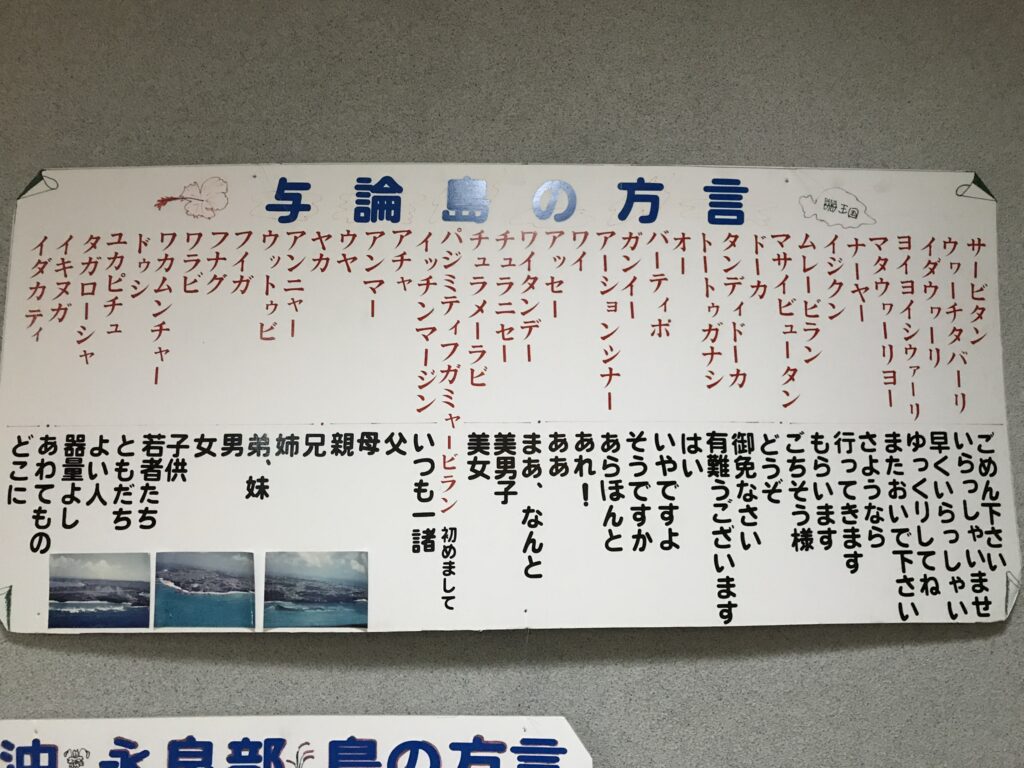 与論島の方言
癒王国
サービタン ごめん下さい
ウヮーチタバーリ いらっしゃいませ
イダウヮーリ 早くいらっしゃい
ヨイヨイイシウァーリ ゆっくりしてね
マタウヮーリヨー またおいで下さい
ナーヤー さようなら
イジクン 行ってきます
ムレービラン もらいます
マサイビュータン ごちそう様
ドーカ どうぞ
タンディドーカ 御免なさい
トートゥガナシ 有難うございます
オー はい
バーティボ いやですよ
ガンイー そうですか
アーションシナー あらほんと
ワイ あれ！
アッセー ああ
ワイタンデー まあ、なんと
チュラニセー 美男子
チュラメーラビ 美女
パジミティフガミャービラン 初めまして
イッチンマージン いつも一諸
アチャ 父
アンマー 母
ウヤ 親
ヤカ 兄
アンニャー 姉
ウットゥビ 弟、妹
フイガ 男
フナグ 女
ワラビ 子供
ワカムンチャー 若者たち
ドゥシ ともだち
ユカピチュ よい人
タガローシャ 器量よし
イキヌガ あわてもの
イダカティ どこに
沖永良部島の方言